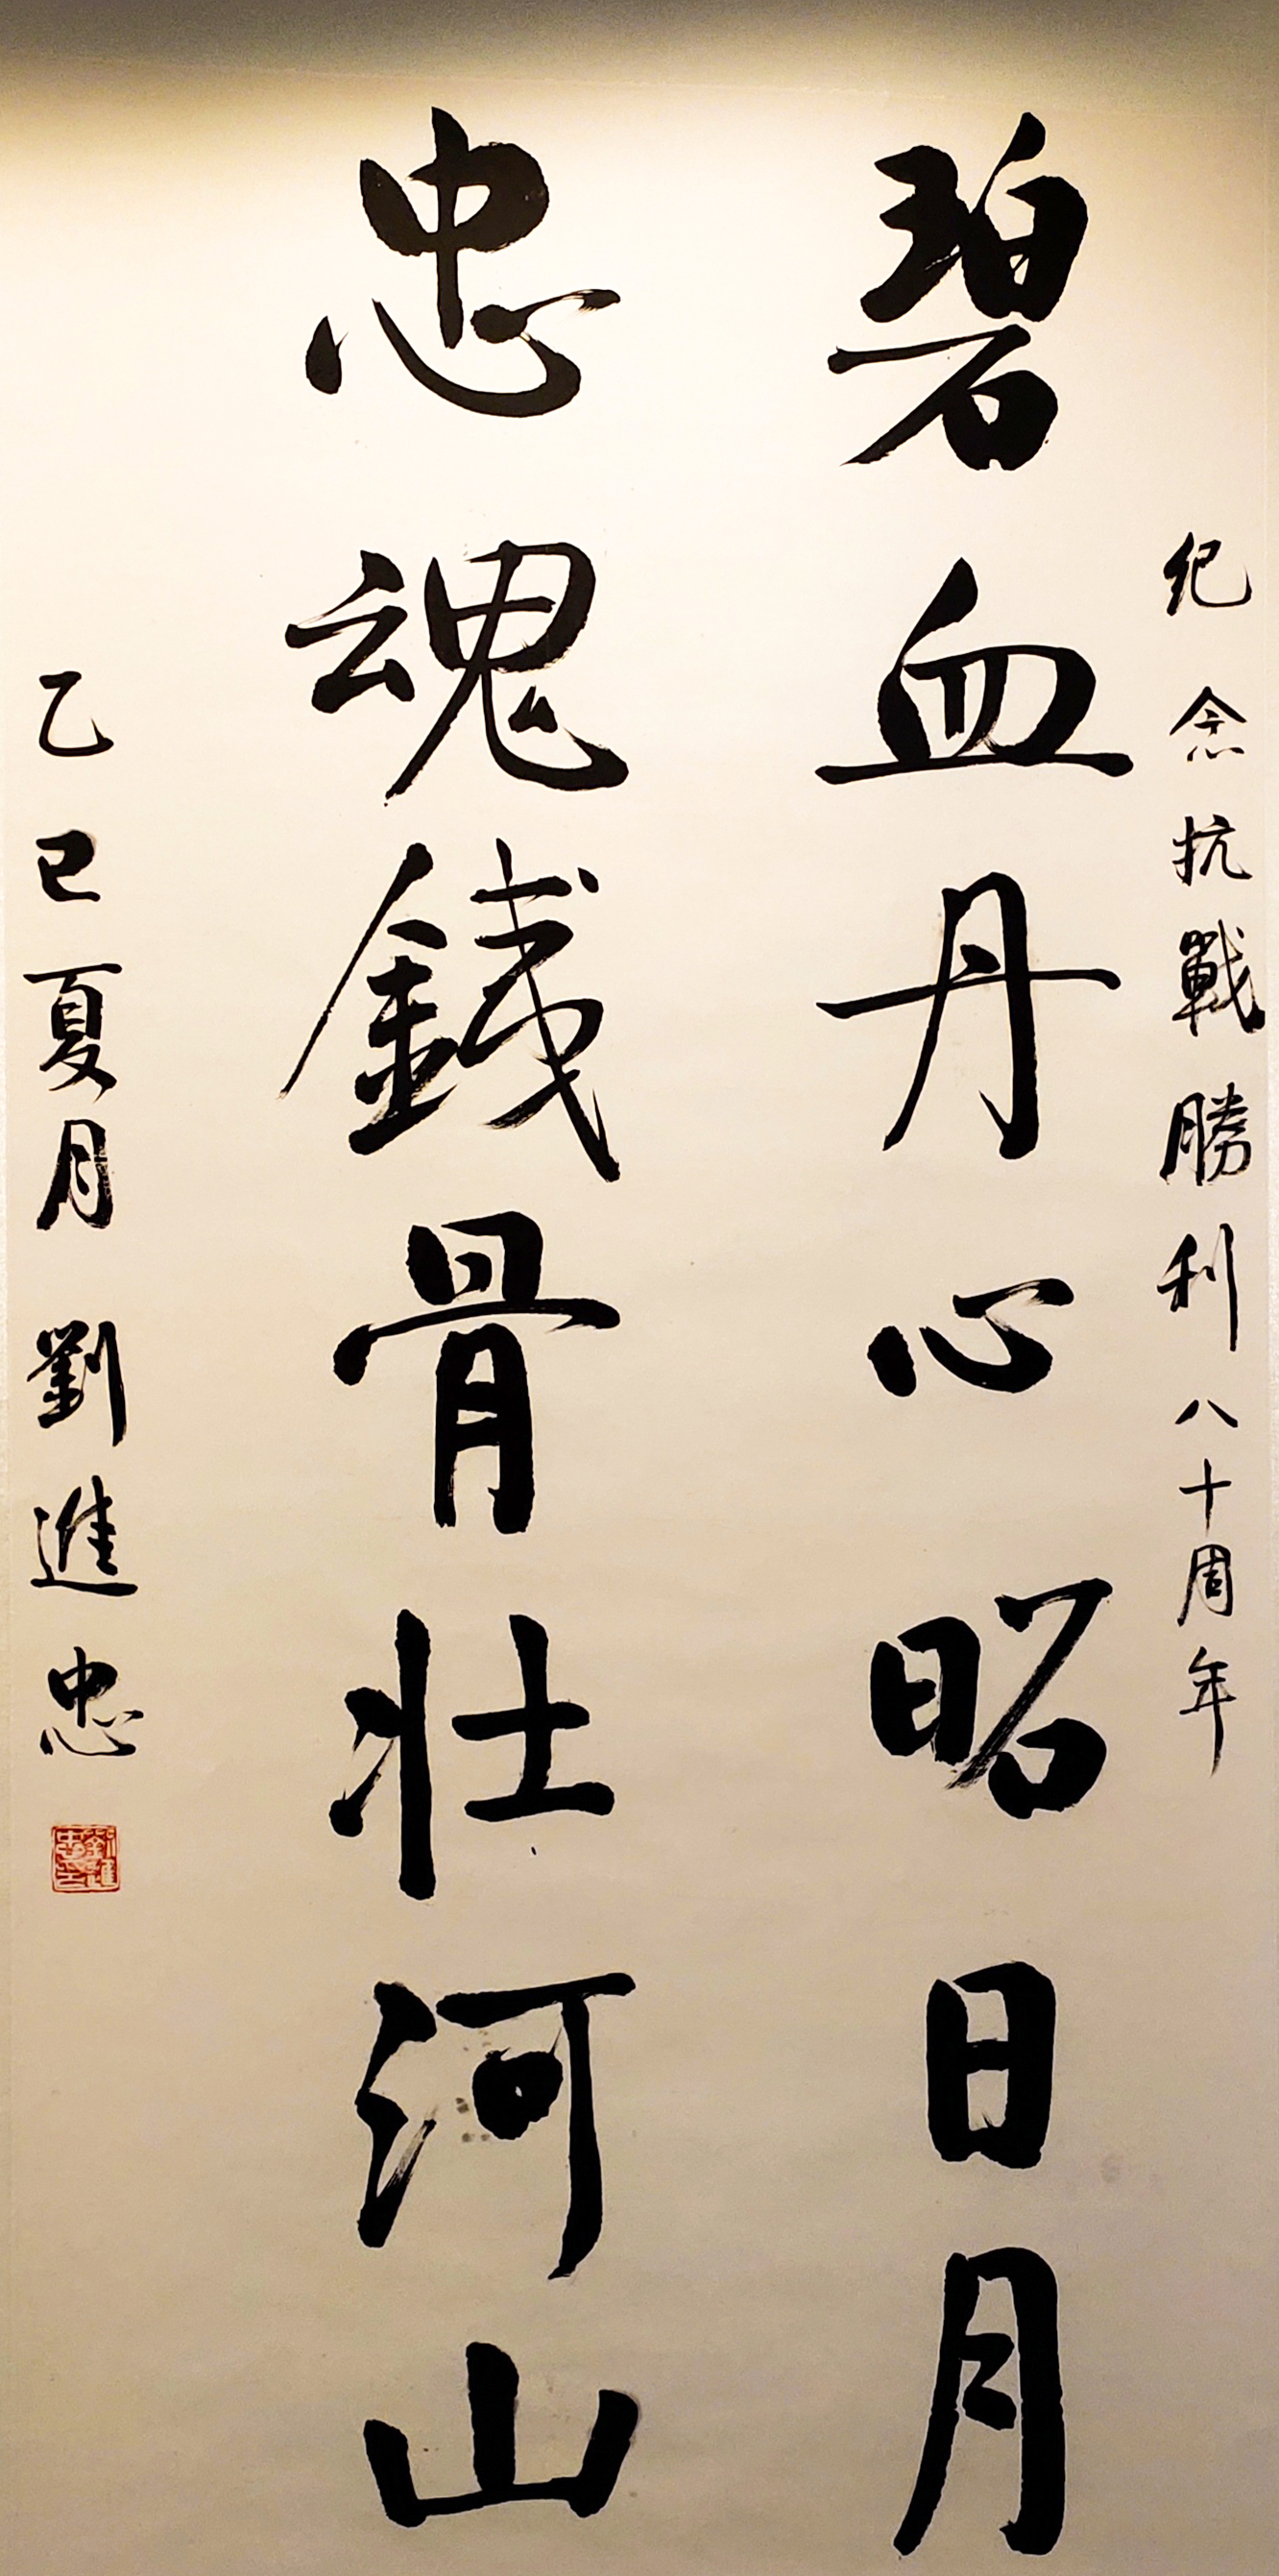 紀念抗戰勝利八十周年
碧血丹心昭日月
忠魂鐵骨壯河山
乙巳夏月劉進忠